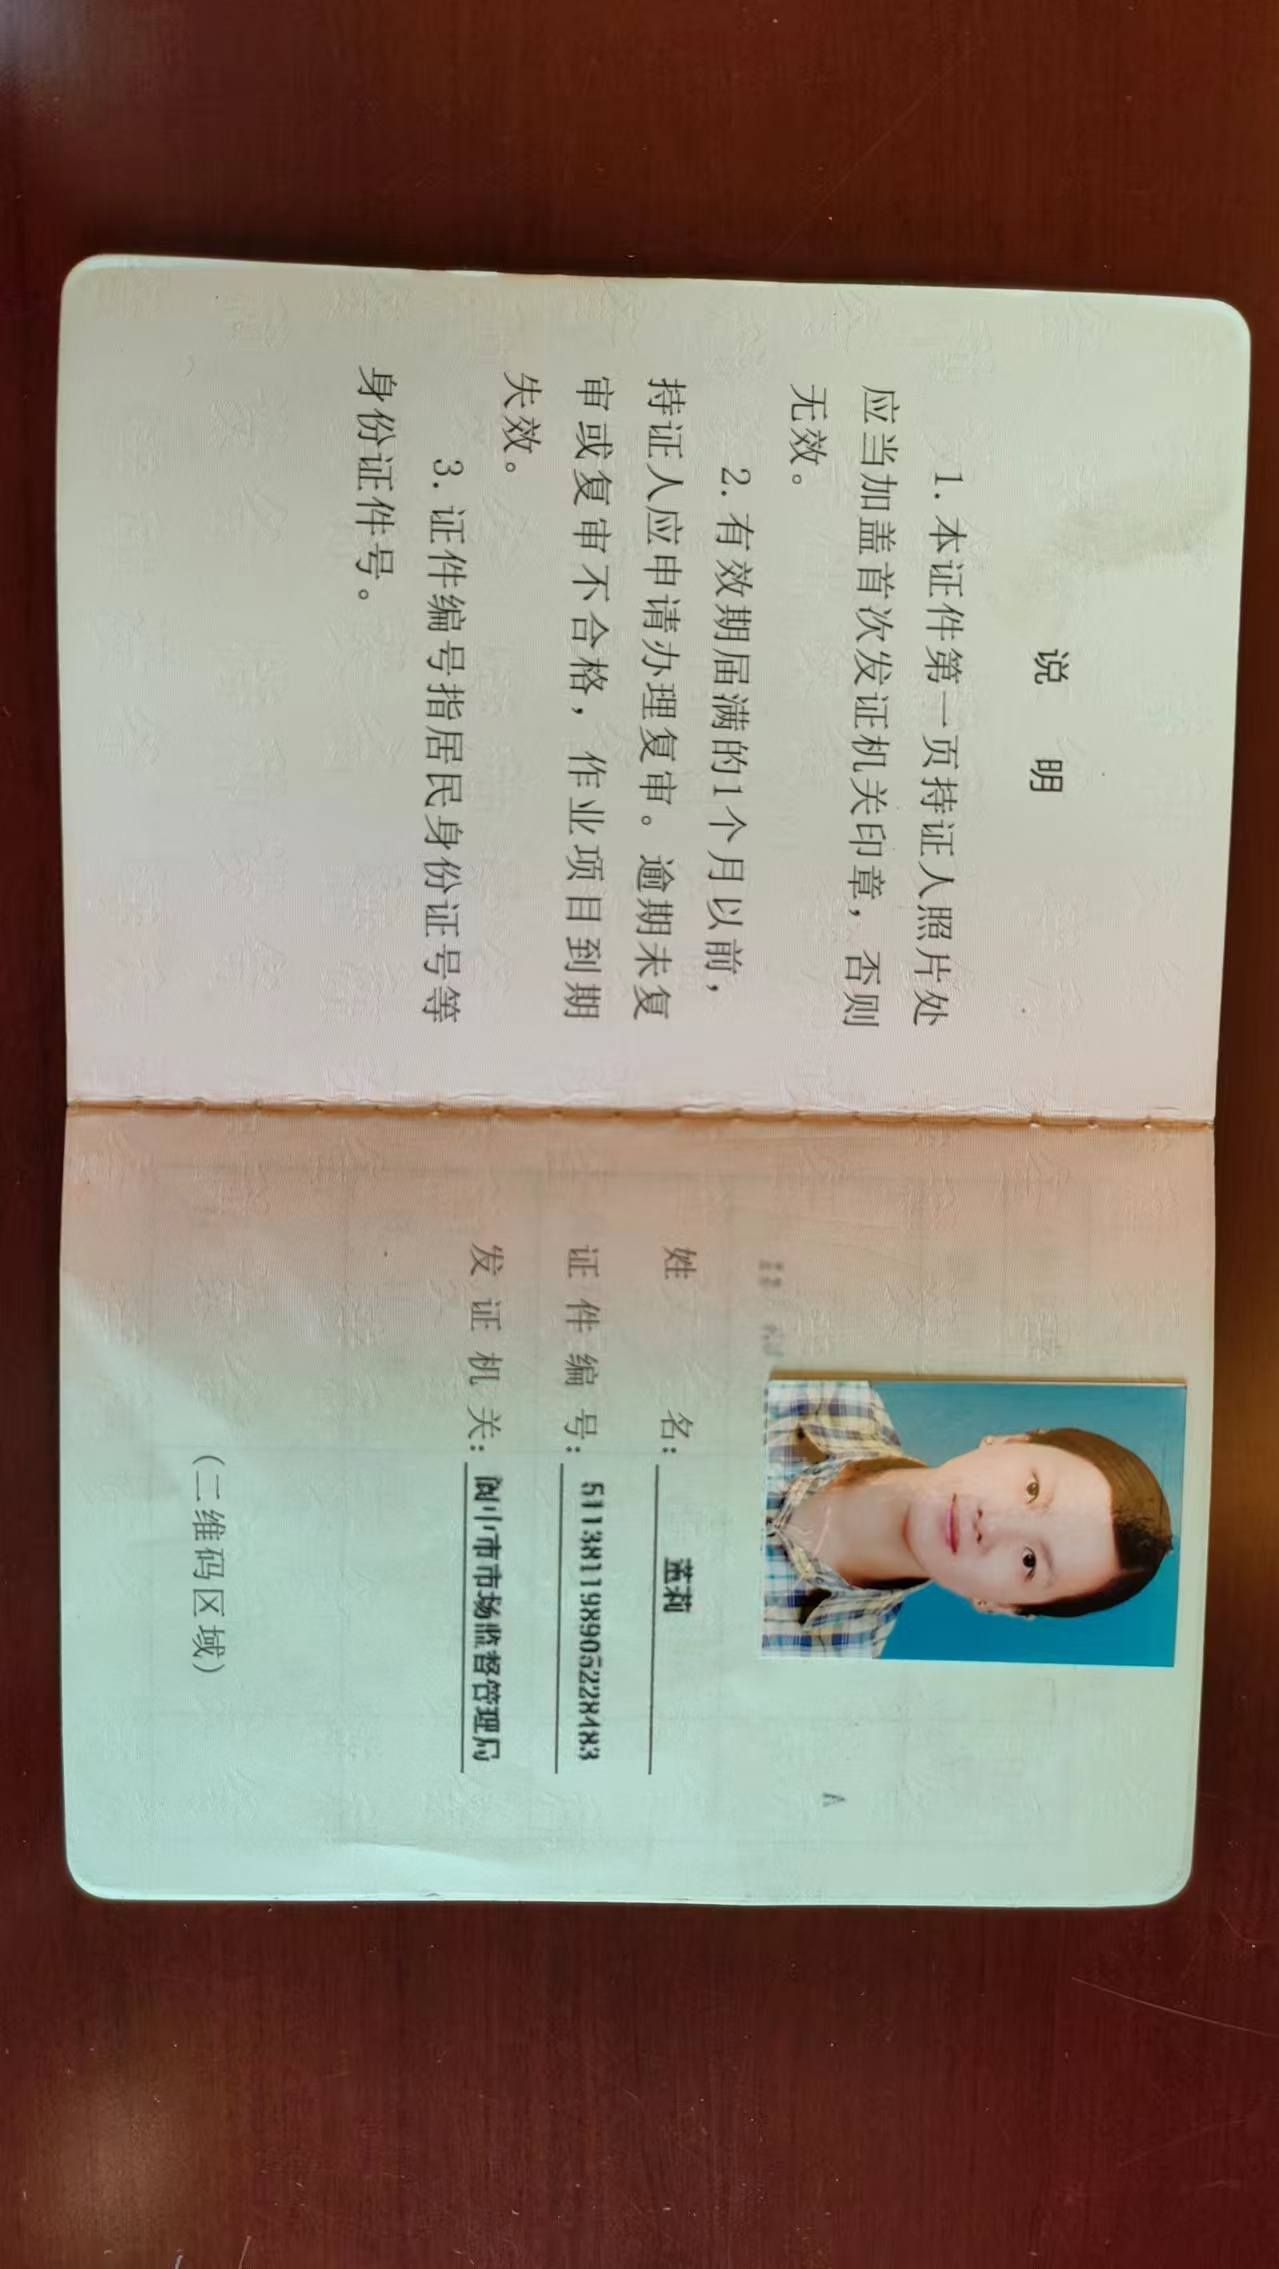 说 明
1.本证件第一页持证人照片处
应当加盖首次发证机关印章，否则
无效。
2.有效期届满的1个月以前，
持证人应申请办理复审。逾期未复
审或复审不合格，作业项目到期
失效。
3.证件编号指居民身份证号等
身份证件号。
姓 名： 孟莉
证件编号： 511381198905228483
发证机关： 阆中市市场监督管理局
（二维码区域）
A